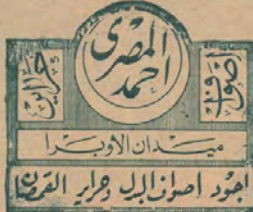 المصرى
احمد
أصواف
حراير
ميدان الاوبرا
اجود اصواف البدل وحراير القمصان